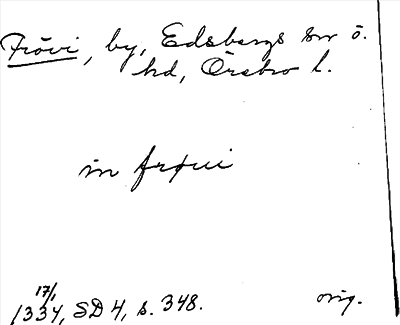 Frövi, by, Edsbergs sn o.
hd, Örebro l.
in frøui
17/1
1334, SD 4, s. 348. orig.